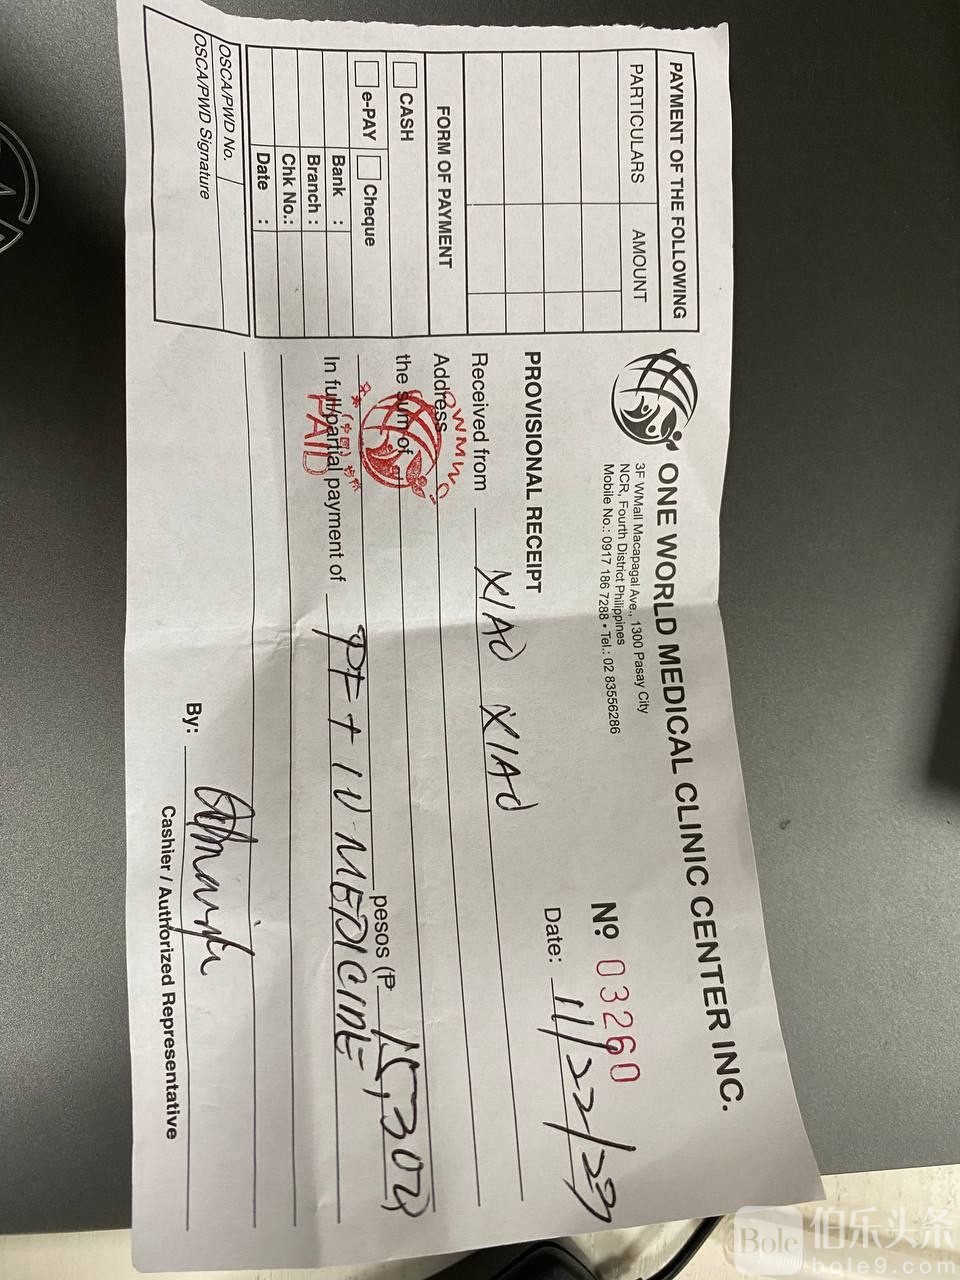 PAYMENT OF THE FOLLOWING
PARTICULARS AMOUNT
FORM OF PAYMENT
CASH
e-PAY Cheque
Bank :
Branch :
Chk No.:
Date :
OSCA/PWD No.
OSCA/PWD Signature
ONE WORLD MEDICAL CLINIC CENTER INC.
3F WMall Macapagal Ave., 1300 Pasay City
NCR, Fourth District Philippines
Mobile No.: 0917 186 7288 • Tel.: 02 83556286
Nº 03260
PROVISIONAL RECEIPT
Date: 11/22/23
Received from XIAO XIAO
Address
the sum of
pesos (₱ 15,302)
In full/partial payment of PF + IV MEDICINE
OWMW
PAID
By:
Cashier / Authorized Representative
Bole 伯乐头条
bole9.com